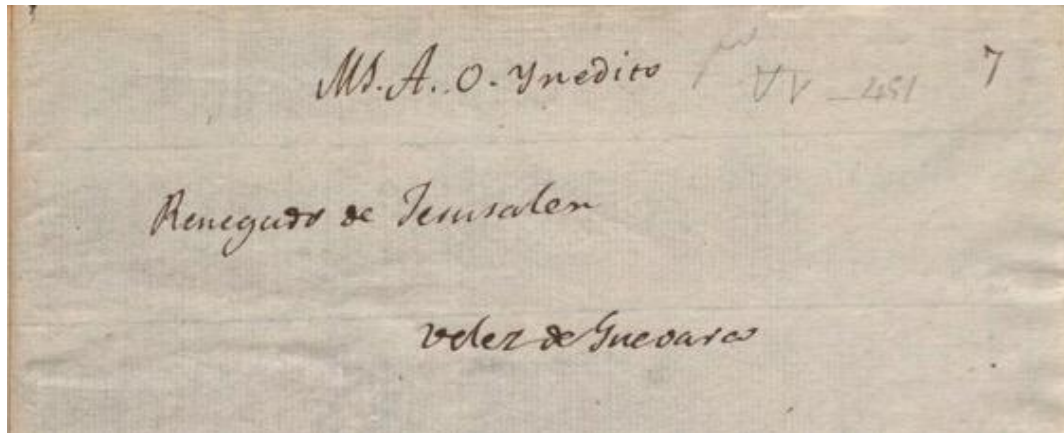 Ms. A. O. Ynedito 7
Renegado de Jerusalen
velez de Guevara